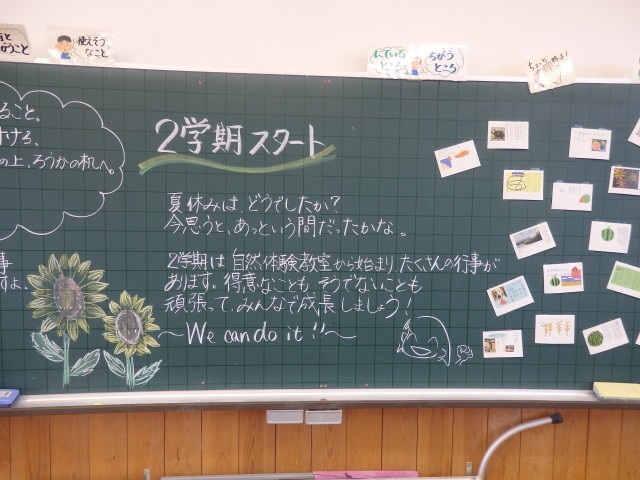 使えそう
なこと
にている
ところ
ちがう
ところ
2学期スタート
夏休みは、どうでしたか？
今思うと、あっという間だったかな。
2学期は自然体験教室から始まり、たくさんの行事が
あります。得意なことも、そうでないことも
頑張って、みんなで成長しましょう！
～We can do it!!～
ること。
する、
の上、ろうかの机へ。
事
すよ、